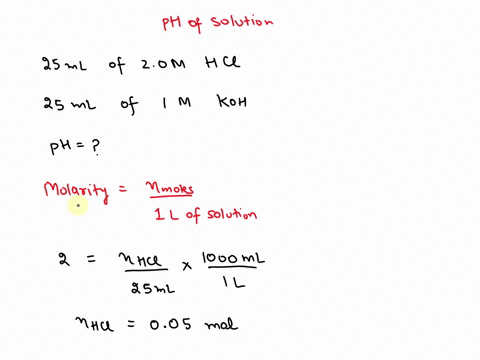 pH of solution
25 mL of 2.0 M HCl
25 mL of 1 M KOH
pH = ?
Molarity = nmoles / 1 L of solution
2 = nHCl / 25 mL × 1000 mL / 1 L
nHCl = 0.05 mol